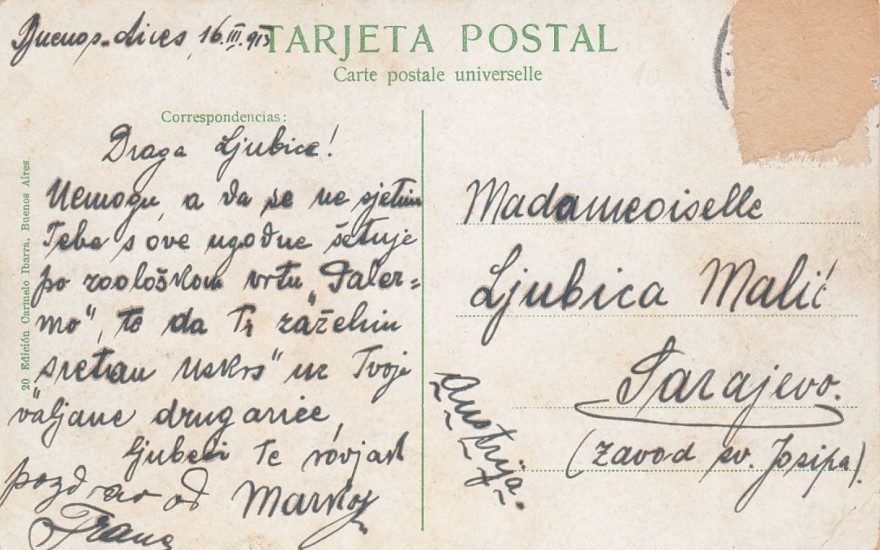 Buenos-Aires, 16.III.913
TARJETA POSTAL
Carte postale universelle
Correspondencias:
Draga Ljubice!
Nemogu, a da se ne sjetim
Tebe s ove ugodne šetnje
po zoološkom vrtu "Paler=
mo", te da Ti zaželim
sretan Uskrs" uz Tvoje
valjane drugarice,
Ljubeći Te
pozdrav od
Franq
20 Edición Carmelo Ibarra, Buenos Aires.
Madameoiselle
Ljubica Malić
Sarajevo.
(zavod sv. Josipa).
Austrija.